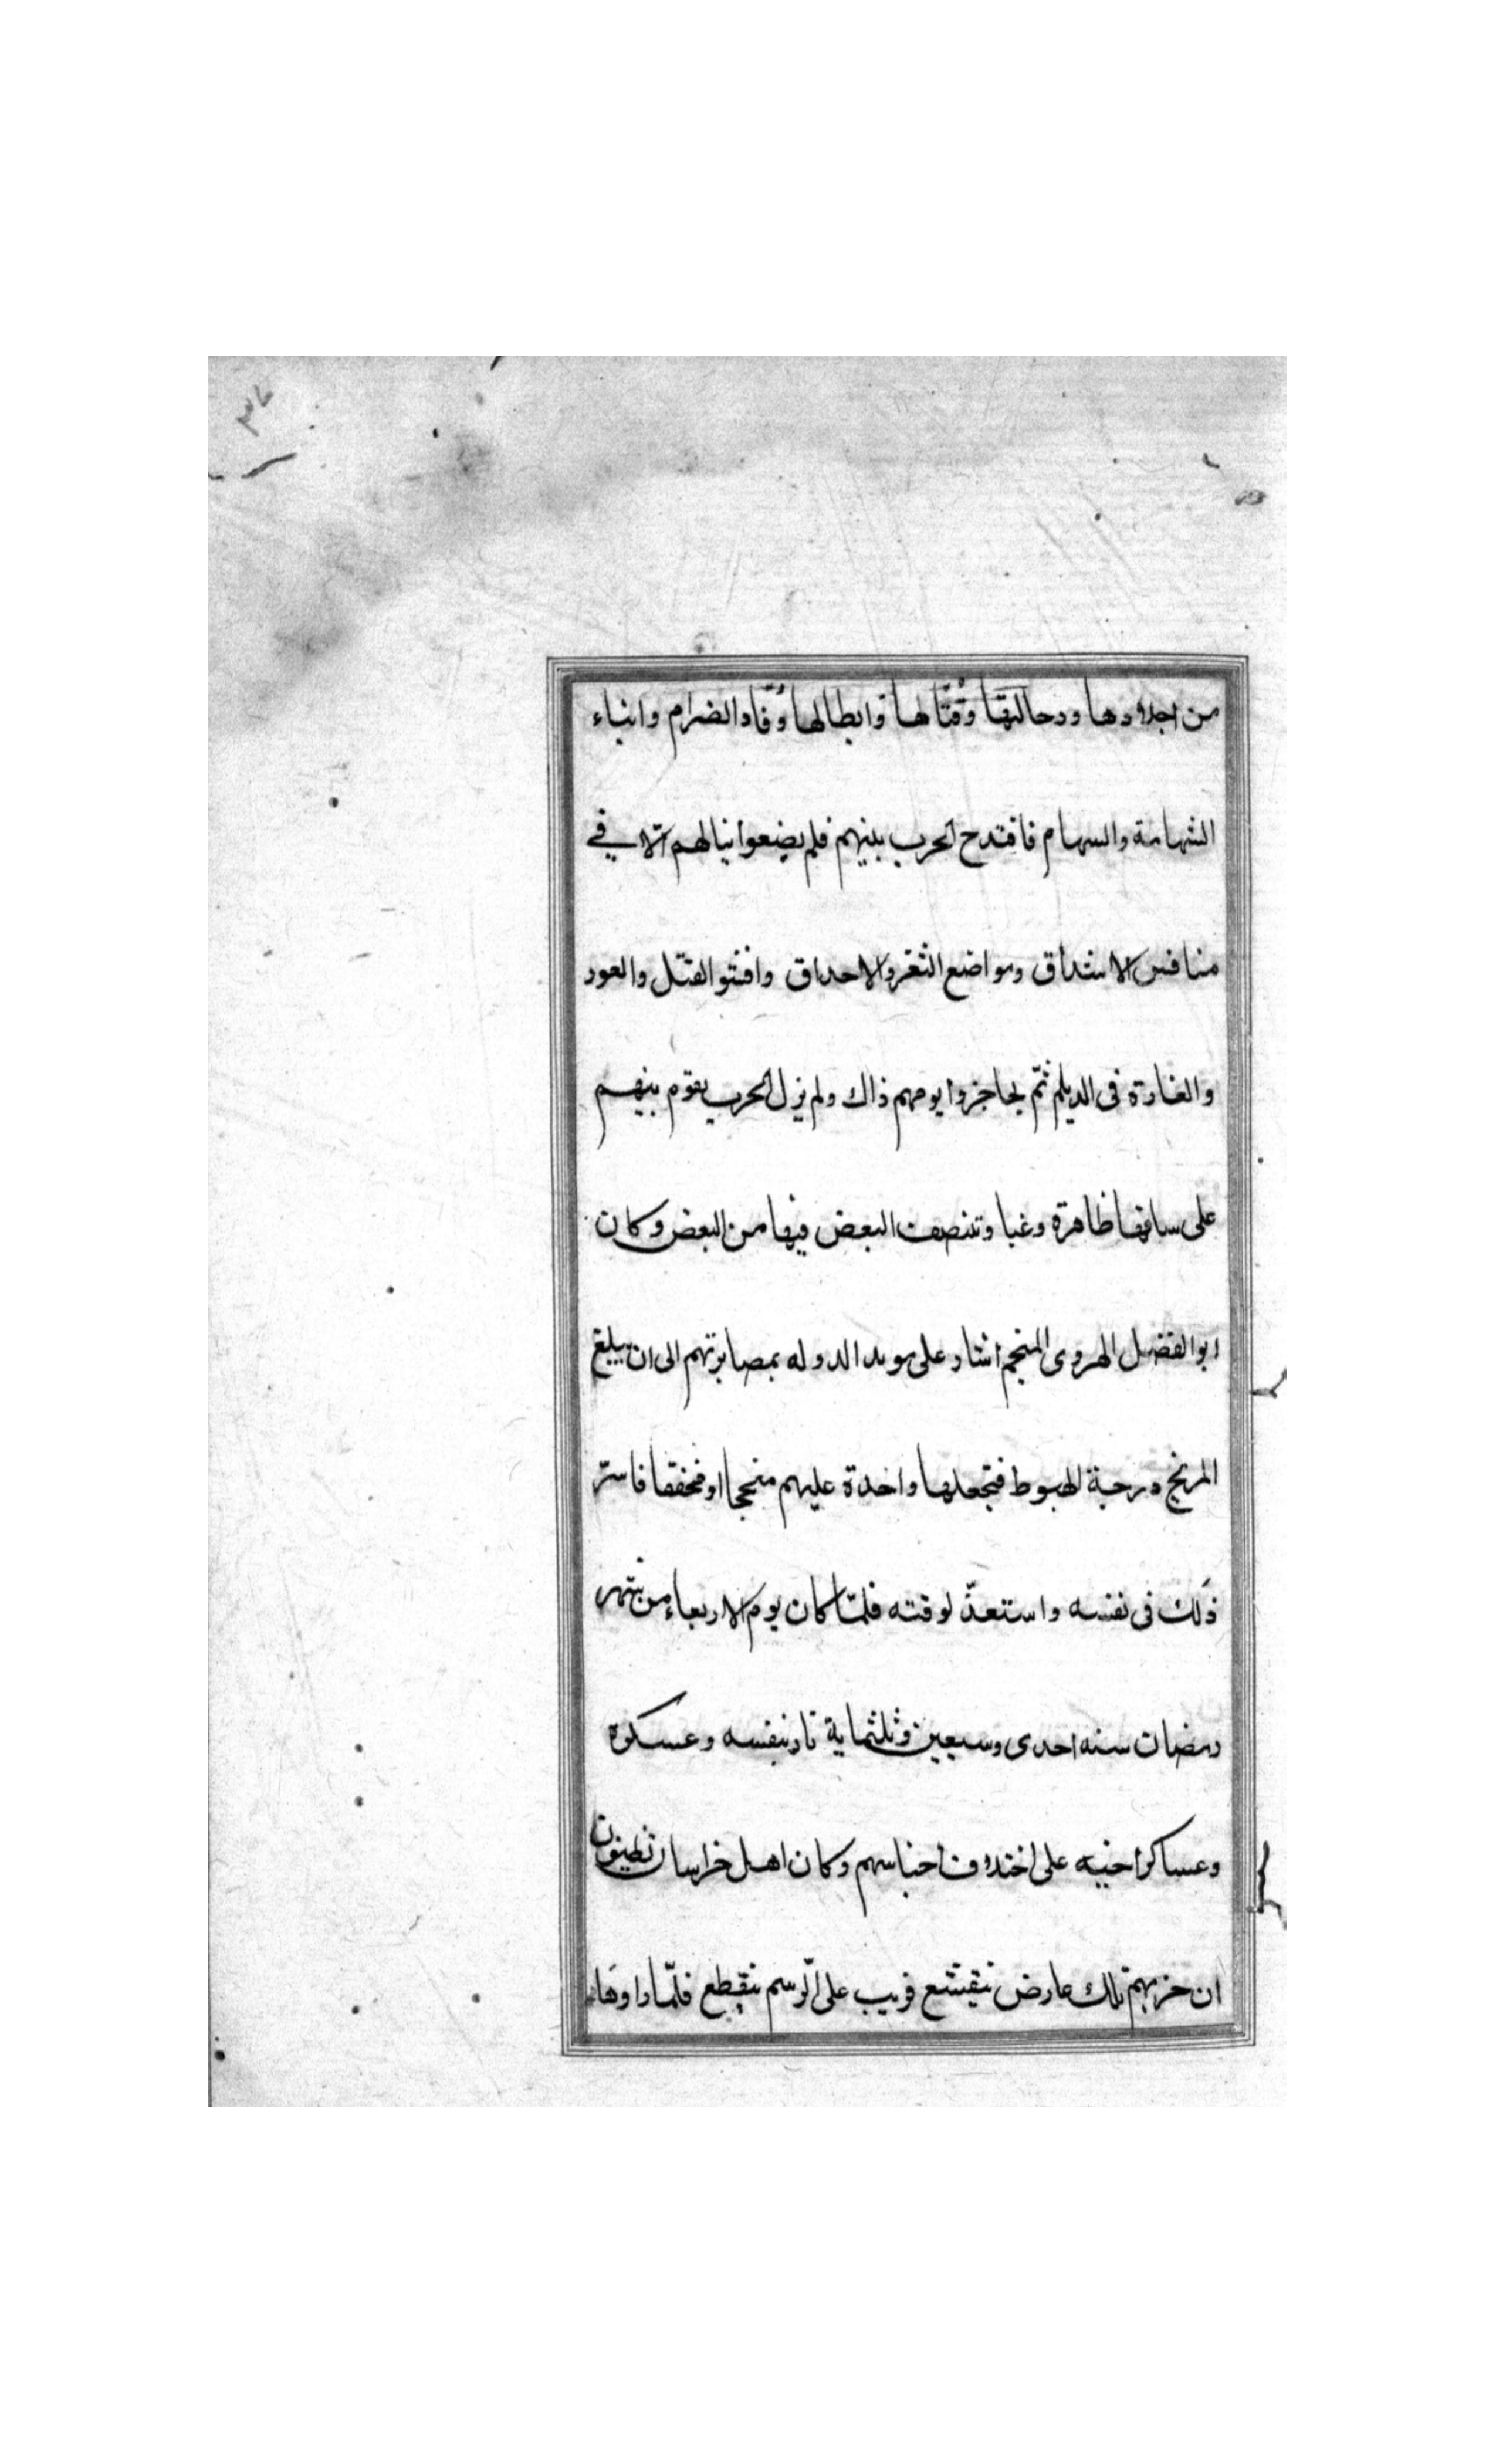 ٣٧
من اجلادها ودحالتها وقتالها وابطالها وقاد الضرام وابناء
الشهامة والسهام فاقتدح الحرب بينهم فلم يضعوا نبالهم الا في
منافس الاشداق ومواضع الثغر والاحداق وافشوا القتل والعود
والغارة فى الديلم ثمّ تحاجزوا يومهم ذاك ولم يزل الحرب يقوم بينهم
على ساقها ظاهرة وغبا وتنصف البعض فيها من البعض وكان
ابو الفضل الهروى المنجم اشار على مويد الدوله بمصابرتهم الى ان يبلغ
المريخ درجة الهبوط فيجعلها واحدة عليهم منجحا او مخفقا فاسرّ
ذلك فى نفسه واستعدّ لوقته فلمّا كان يوم الاربعاء من شهر
رمضان سنه احدى وسبعين وثلثماية ثار بنفسه وعسكره
وعساكر اخيه على اختلاف اجناسهم وكان اهل خراسان يظنون
ان حربهم تلك عارض يتقشع قريب على الرسم ينقطع فلمّا راوها